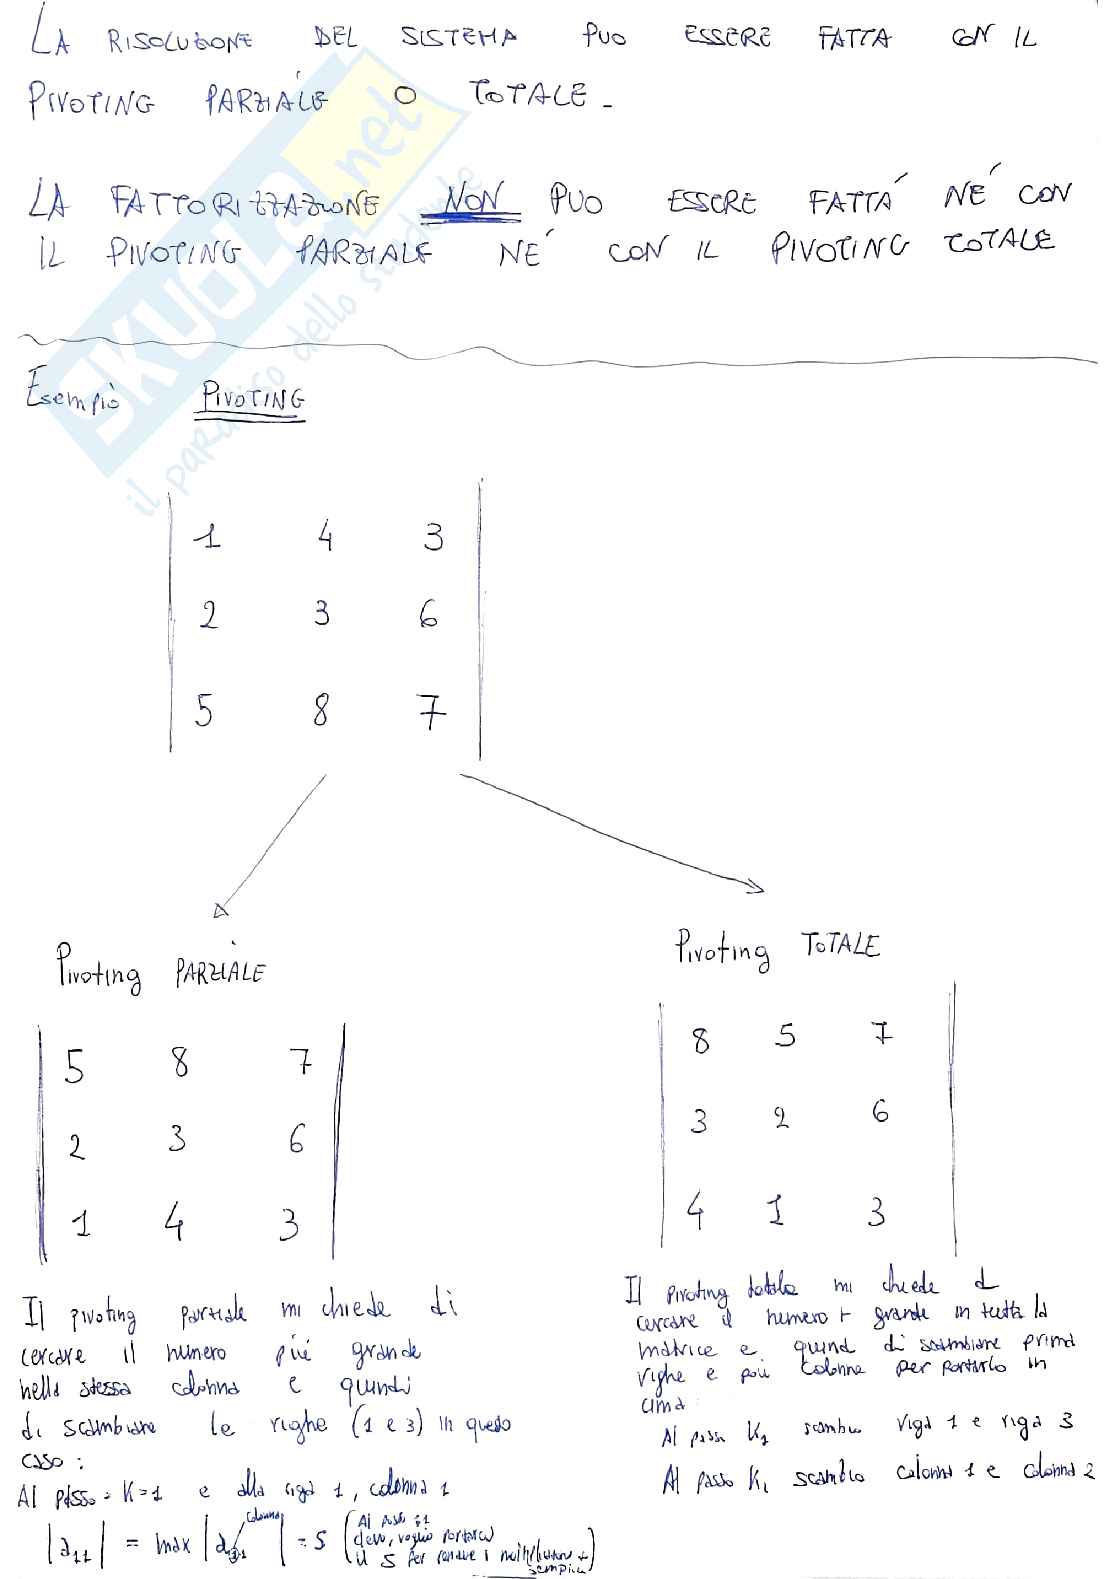 LA RISOLUZIONE DEL SISTEMA PUO ESSERE FATTA CON IL
PIVOTING PARZIALE O TOTALE.
LA FATTORIZZAZIONE NON PUO ESSERE FATTA NE' CON
IL PIVOTING PARZIALE NE' CON IL PIVOTING TOTALE
SKUOLA.net
il paradiso dello studente
Esempio PIVOTING
1 4 3
2 3 6
5 8 7
Pivoting PARZIALE
5 8 7
2 3 6
1 4 3
Il pivoting parziale mi chiede di
cercare il numero più grande
nella stessa colonna e quindi
di scambiare le righe (1 e 3) in questo
caso:
Al passo: K=1 e alla riga 1, colonna 1
|a11| = max |a31| = 5
colonna
Pivoting TOTALE
8 5 7
3 2 6
4 1 3
Il pivoting totale mi chiede di
cercare il numero + grande in tutta la
matrice e quindi di scambiare prima
righe e poi colonne per portarlo in
cima
Al passo K1 scambio riga 1 e riga 3
Al passo K1 scambio colonna 1 e colonna 2